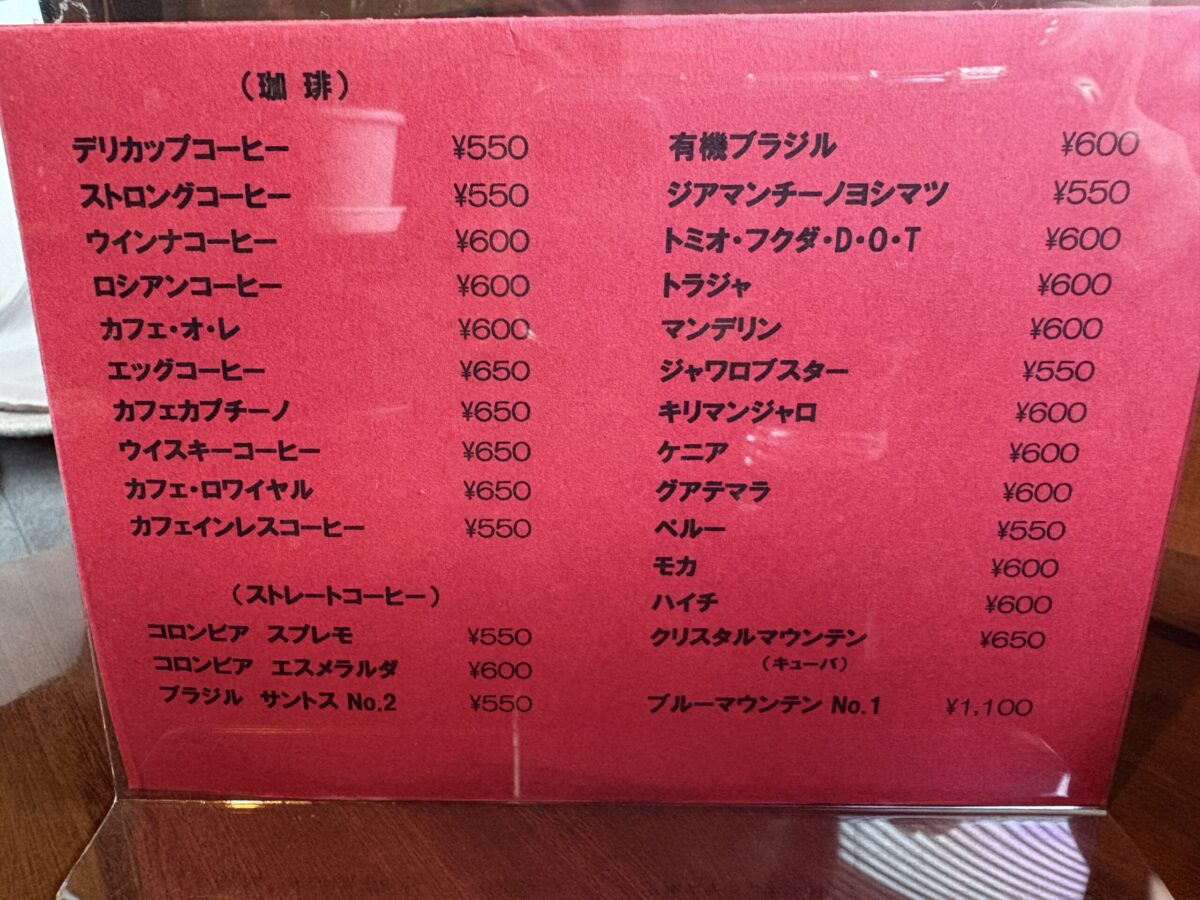 (珈 琲)
デリカップコーヒー ¥550
ストロングコーヒー ¥550
ウインナコーヒー ¥600
ロシアンコーヒー ¥600
カフェ・オ・レ ¥600
エッグコーヒー ¥650
カフェカプチーノ ¥650
ウイスキーコーヒー ¥650
カフェ・ロワイヤル ¥650
カフェインレスコーヒー ¥550
(ストレートコーヒー)
コロンビア スプレモ ¥550
コロンビア エスメラルダ ¥600
ブラジル サントス No.2 ¥550
有機ブラジル ¥600
ジアマンチーノヨシマツ ¥550
トミオ・フクダ・D・O・T ¥600
トラジャ ¥600
マンデリン ¥600
ジャワロブスター ¥550
キリマンジャロ ¥600
ケニア ¥600
グアテマラ ¥600
ペルー ¥550
モカ ¥600
ハイチ ¥600
クリスタルマウンテン ¥650
(キューバ)
ブルーマウンテン No.1 ¥1,100